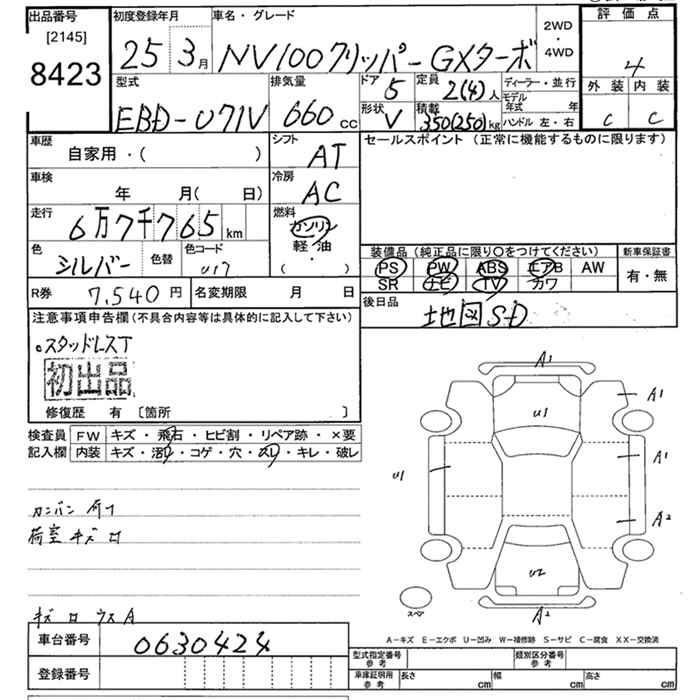 出品番号
[2145]
8423
初度登録年月
25 3月
車名・グレード
NV100クリッパー GXターボ
2WD
・
4WD
評価点
4
外装 内装
C C
型式
EBD-U71V
排気量
660 cc
ドア
5
定員
2(4)人
形状
V
積載
350(250)kg
ディーラー・並行
モデル年式 年
ハンドル 左・右
車歴
自家用・( )
シフト
AT
セールスポイント (正常に機能するものに限ります)
車検
年 月( 日)
冷房
AC
走行
6万7千765km
燃料
ガソリン
軽・油
・
( )
色
シルバー
色替
色コード
U17
装備品 (純正品に限り○をつけてください)
PS PW ABS エアB AW
SR ナビ TV カワ
新車保証書
有・無
R券
7,540円
名変期限 月 日
後日品
地図SD
注意事項申告欄(不具合内容等は具体的に記入して下さい)
。スタッドレスT
初出品
修復歴 有 〔箇所 〕
検査員記入欄
FW キズ・飛石・ヒビ割・リペア跡・×要
内装 キズ・汚れ・コゲ・穴・スレ・キレ・破レ
カンバン
荷室キズ
A1
U1
A1
A1
U1
A2
U2
A2
スペア
A-キズ E-エクボ U-凹み W-補修跡 S-サビ C-腐食 XX-交換済
車台番号
0630424
登録番号
型式指定番号
参考
類別区分番号
参考
車庫証明用
参考
長さ cm
幅 cm
高さ cm